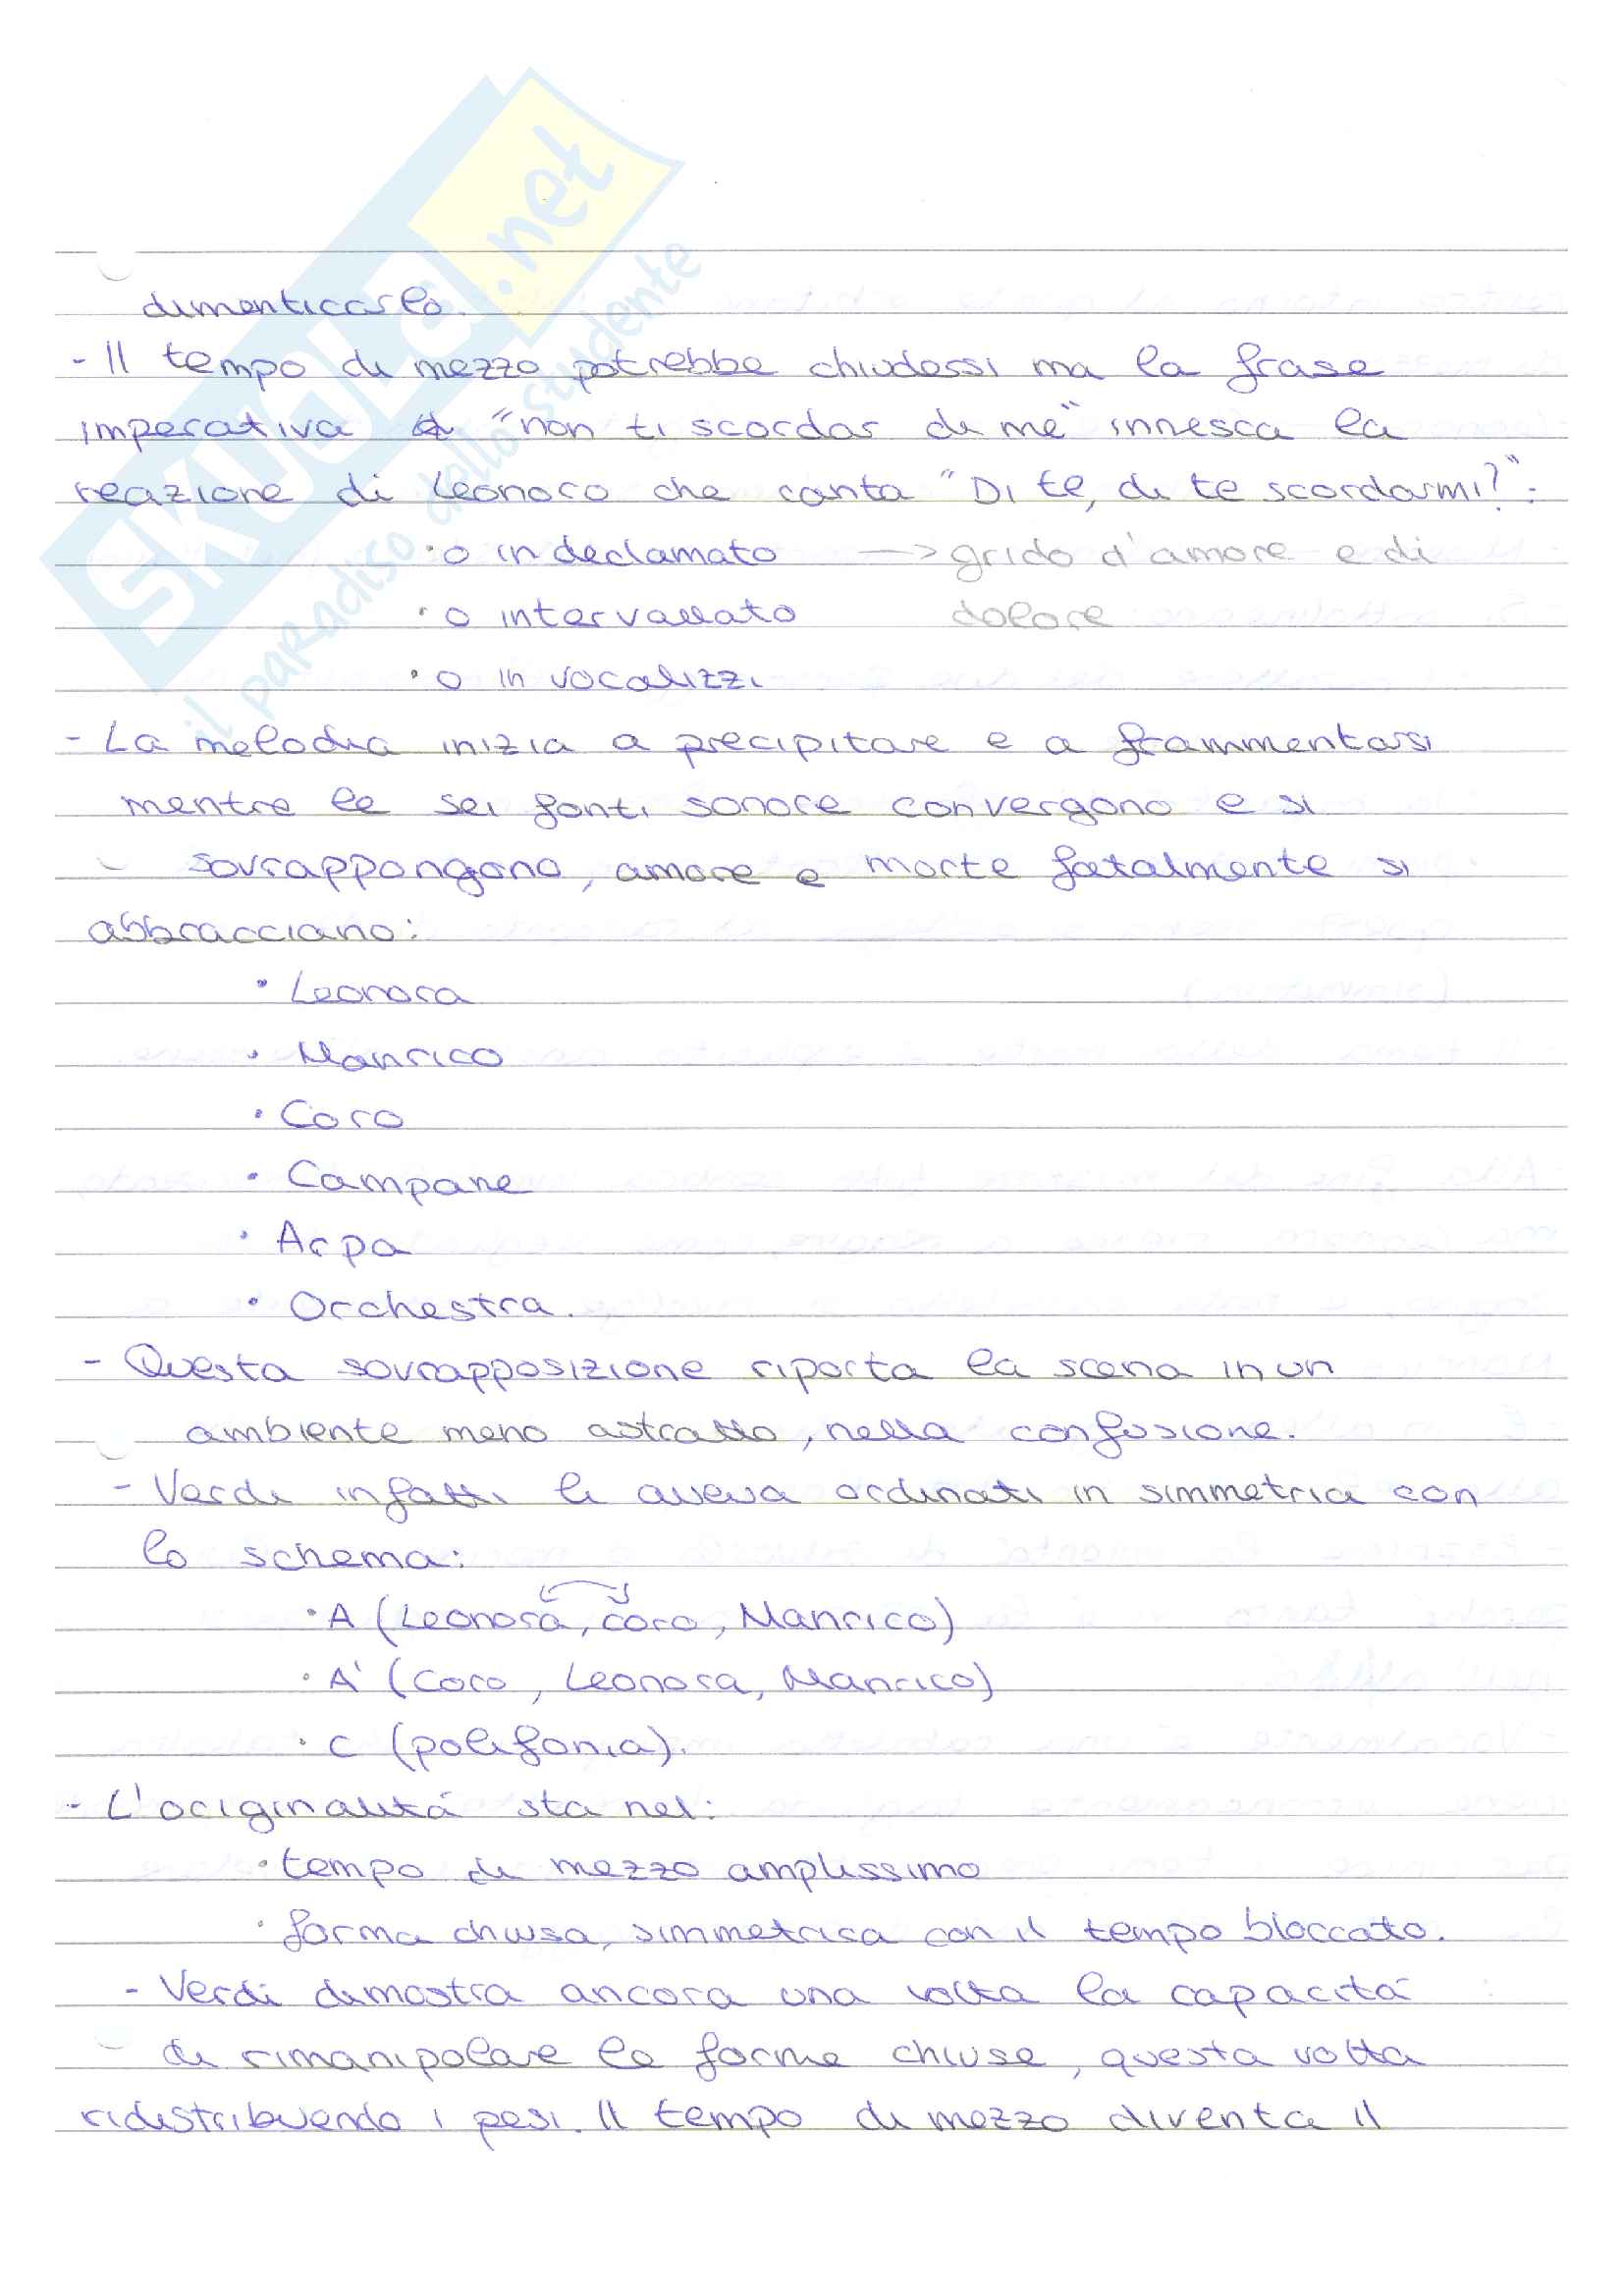 SKUOLA.net
il paradiso dello studente
dimenticarlo.
- Il tempo di mezzo potrebbe chiudersi ma la frase
imperativa "non ti scordar di me" innesca la
reazione di Leonora che canta "Di te, di te scordarmi?":
· o in declamato —> grido d'amore e di
· o intervallato dolore
· o in vocalizzi
- La melodia inizia a precipitare e a frammentarsi
mentre le sei fonti sonore convergono e si
sovrappongono, amore e morte fatalmente si
abbracciano:
· Leonora
· Manrico
· Coro
· Campane
· Arpa
· Orchestra.
- Questa sovrapposizione riporta la scena in un
ambiente meno astratto, nella confusione.
- Verdi infatti li aveva ordinati in simmetria con
lo schema:
· A (Leonora, coro, Manrico)
· A' (Coro, Leonora, Manrico)
· C (polifonia).
- L'originalitá sta nel:
· tempo di mezzo amplissimo
· forma chiusa, simmetrica con il tempo bloccato.
- Verdi dimostra ancora una volta la capacitá
di rimanipolare le forme chiuse, questa volta
ridistribuendo i pesi. Il tempo di mezzo diventa il